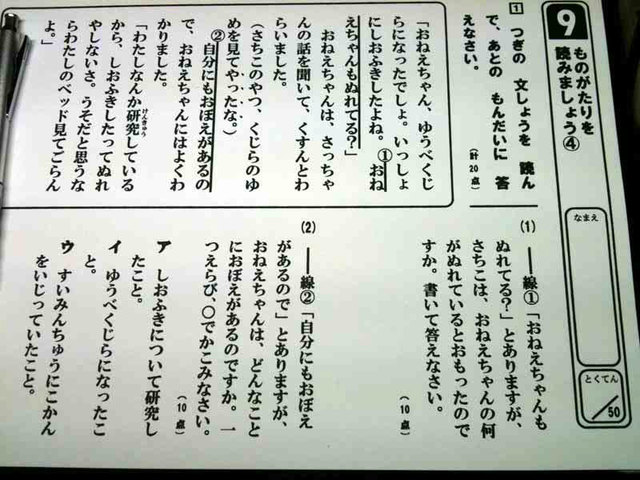 9
ものがたりを
読みましょう④
なまえ
とくてん
／50
1 つぎの 文しょうを 読ん
で、あとの もんだいに 答
えなさい。
（計20点）
「おねえちゃん、ゆうべくじ
らになったでしょ。いっしょ
にしおふきしたよね。①おね
えちゃんもぬれてる？」
おねえちゃんは、さっちゃ
んの話を聞いて、くすんとわ
らいました。
（さちこのやつ、くじらのゆ
めを見てやったな。）
②自分にもおぼえがあるの
で、おねえちゃんにはよくわ
かりました。
「わたしなんか研究している
けんきゅう
から、しおふきしたってぬれ
やしないさ。うそだと思うな
らわたしのベッド見てごらん
よ。」
(1) ――線①「おねえちゃんも
ぬれてる？」とありますが、
さちこは、おねえちゃんの何
がぬれているとおもったので
すか。書いて答えなさい。
（10点）
(2) ――線②「自分にもおぼえ
があるので」とありますが、
おねえちゃんは、どんなこと
におぼえがあるのですか。一
つえらび、〇でかこみなさい。
（10点）
ア しおふきについて研究し
たこと。
イ ゆうべくじらになったこ
と。
ウ すいみんちゅうにこかん
をいじっていたこと。